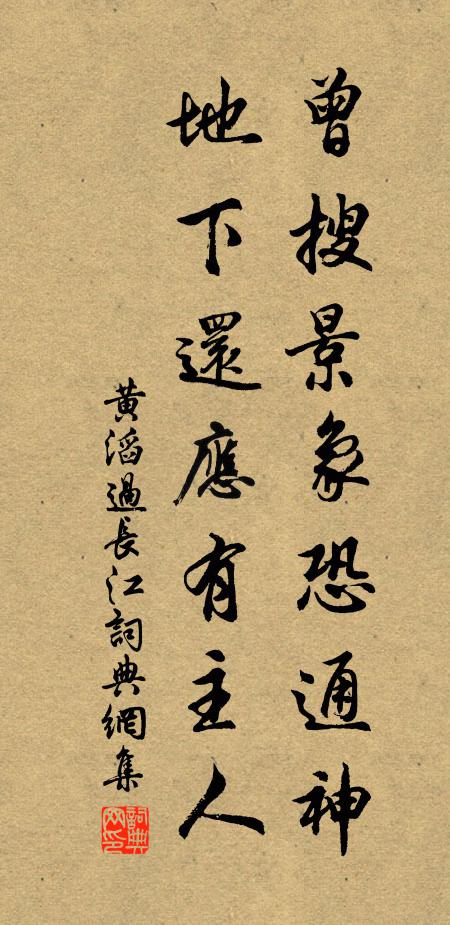 曾搜景象恐通神
地下還應有主人
黃滔過長江詞典網集
詞典网印